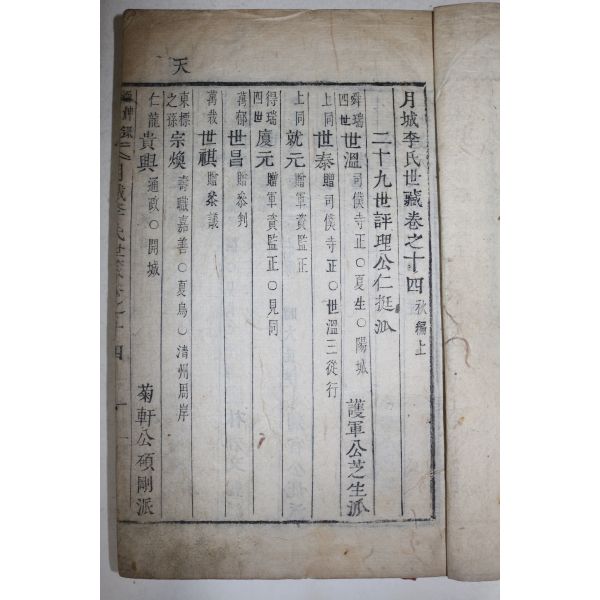 天
月城李氏世藏卷之十四 秋編上
二十九世評理公仁挺派
護軍公芝生派
舜瑞四世 世溫 司僕寺正○夏生○陽城
上同 世泰 贈司僕寺正○世溫三從行
上同 就元 贈軍資監正
得瑞四世 慶元 贈軍資監正○見同
萬郁 世昌 贈參判
萬栽 世祺 贈參議
東標之孫 宗煥 壽職嘉善○夏鳥○清州周岸
菊軒公碩剛派
仁龍 貴興 通政○開城
月城李氏世藏卷之十四 一